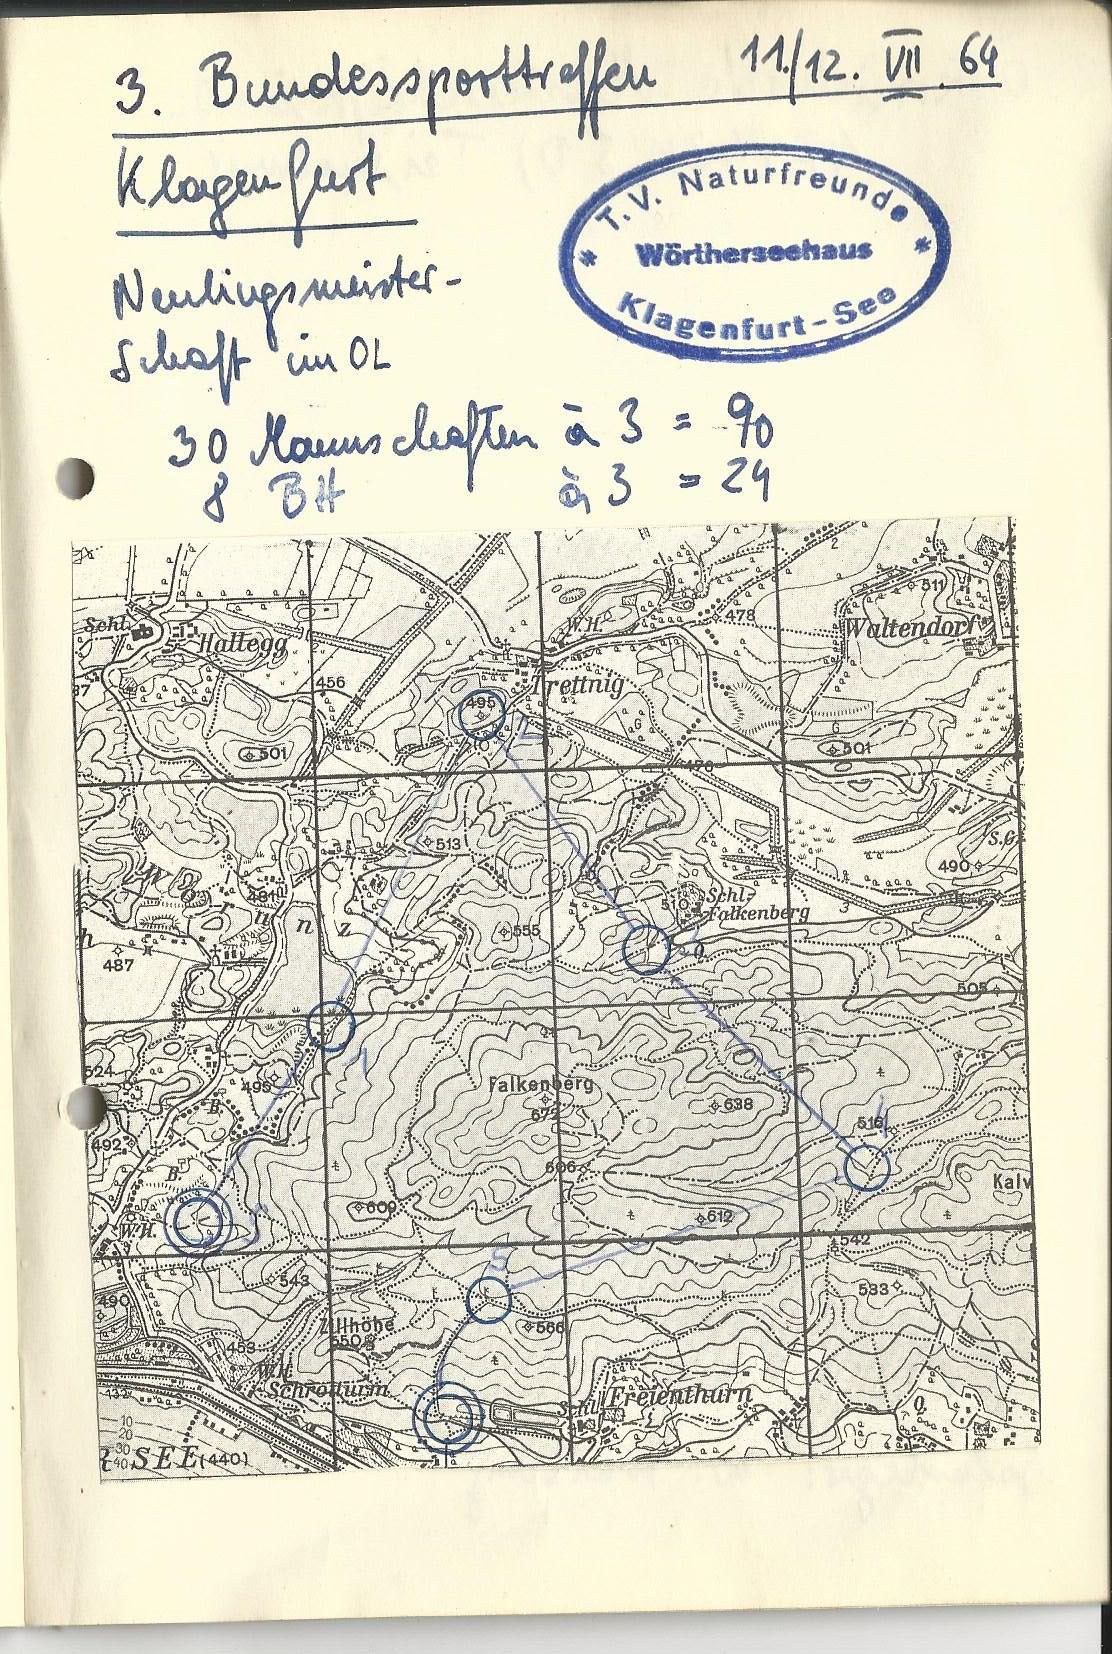 3. Bundessporttreffen 11./12. VII. 64
Klagenfurt
T.V. Naturfreunde
* Wörtherseehaus *
Klagenfurt-See
Neulingsmeister-
schaft im OL
30 Mannschaften à 3 = 90
8 BH à 3 = 24
2
511
Schl.
Hallegg
W.H.
478
Waltendorf
37
456
Trettnig
495
G
501
G
501
2
476
513
S.G.
490
W
481
Schl.
510
Falkenberg
3
h
n
z
555
487
505
1
524
495
Falkenberg
672
638
B.
492
516
4
606
B.
Kalv
600
612
W.H.
S
542
5
543
533
490
Zillhöhe
550
566
453
W.H.
Schrotturm
Schl.
Freienthurn
Q.
10
20
30
40
SEE (440)